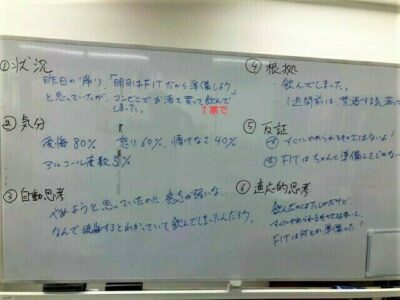 ①状況
昨日の帰り、「明日はFITだから準備しよう」
と思っていたが、コンビニでお酒を買って飲んで
しました。
↑家で
②気分
後悔80% 怒り60% 情けなさ40%
アルコール度数5%
③自動思考
やめようと思っていたのに意志が弱いな
なんで後悔するとわかっていて飲んでしまったんだろう。
④根拠
飲んでしまった。
1週間前は、禁酒する
⑤反証
すぐにやめられるものではないよ!
FITはちゃんと準備した
⑥適応的思考
飲んだのは
すぐにやめられるものではないし、
FITは何とか準備した!